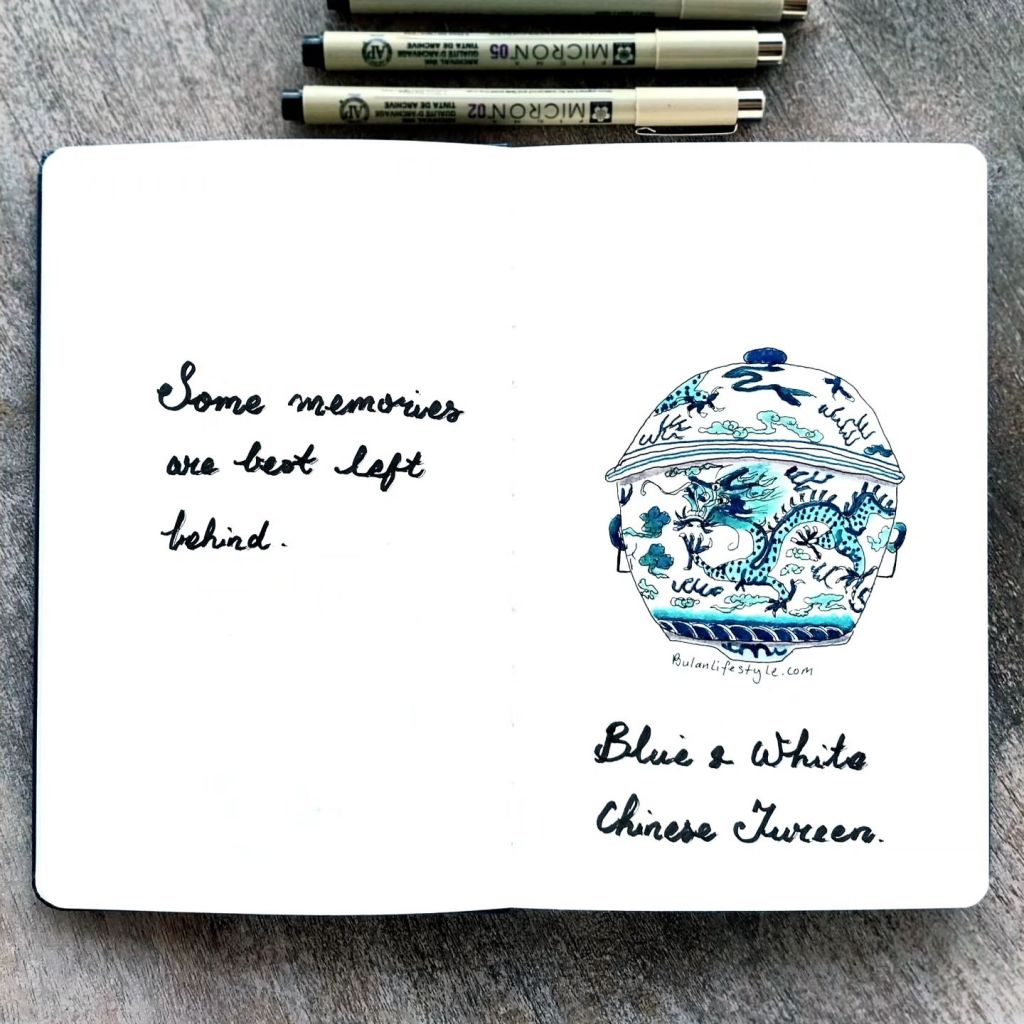 MICRON 05
ARCHIVAL INK
QUALITÉ D'ARCHIVAGE
TINTA DE ARCHIVE
MICRON 02
ARCHIVAL INK
QUALITÉ D'ARCHIVAGE
TINTA DE ARCHIVE
Some memories
are best left
behind.
BulanLifestyle.com
Blue & White
Chinese Tureen.